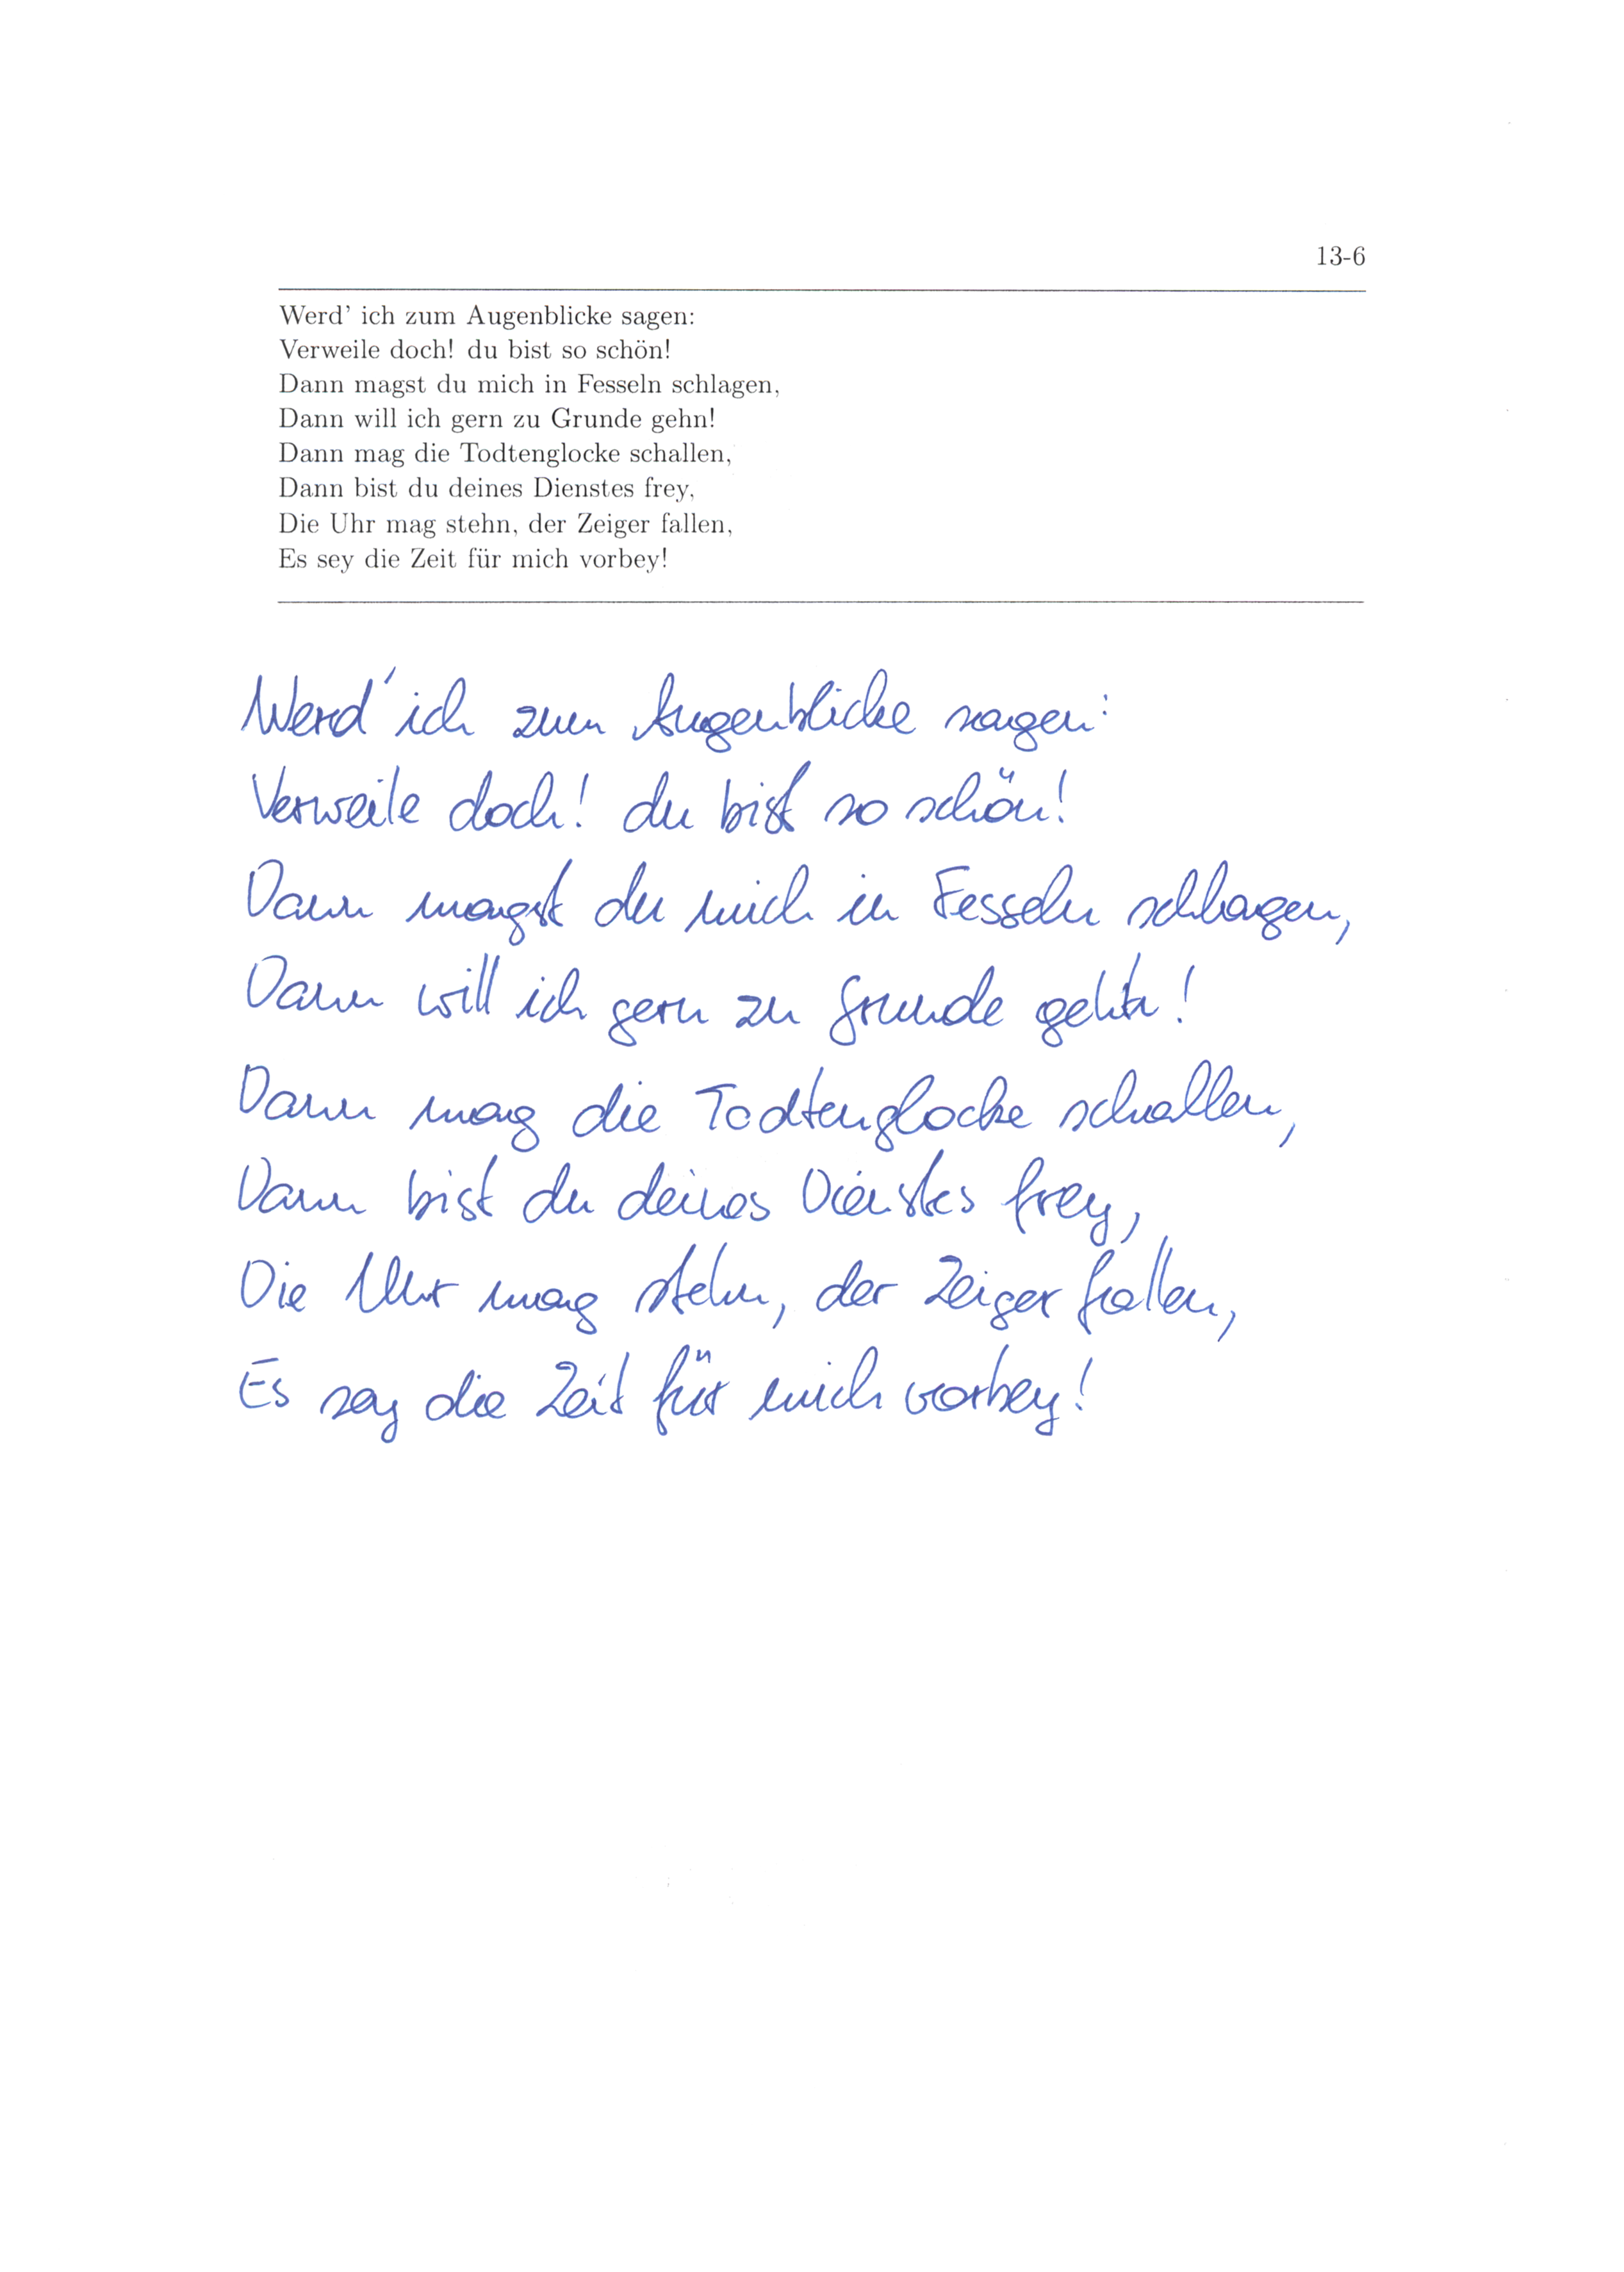 13-6
Werd' ich zum Augenblicke sagen:
Verweile doch! du bist so schön!
Dann magst du mich in Fesseln schlagen,
Dann will ich gern zu Grunde gehn!
Dann mag die Todtenglocke schallen,
Dann bist du deines Dienstes frey,
Die Uhr mag stehn, der Zeiger fallen,
Es sey die Zeit für mich vorbey!
Werd' ich zum Augenblicke sagen:
Verweile doch! du bist so schön!
Dann magst du mich in Fesseln schlagen,
Dann will ich gern zu Grunde gehn!
Dann mag die Todtenglocke schallen,
Dann bist du deines Dienstes frey,
Die Uhr mag stehn, der Zeiger fallen,
Es sey die Zeit für mich vorbey!